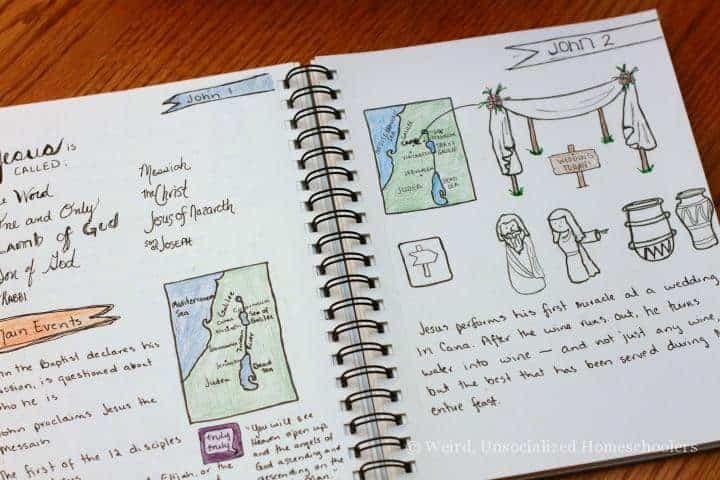 John 1
Jesus is
CALLED:
Word
and Only
Lamb of God
of God
RABBI
Messiah
the Christ
Jesus of Nazareth
JOSEPH
Main Events
the Baptist declares his
is questioned about
he is
John proclaims Jesus the
Messiah
The first of the 12 disciples
Elijah, or the
Mediterranean
Sea
Galilee
Cana
Sea of
Galilee
Judea
Dead
Sea
truly
truly
"You will see
Heaven open up
and the angels of
God ascending and
descending on the
John 2
MEDITERRANEAN
SEA
GALILEE
CANA
SEA OF
GALILEE
JERUSALEM
JUDEA
DEAD
SEA
WEDDING
TODAY!
Jesus performs his first miracle at a wedding
in Cana. After the wine runs out, he turns
water into wine — and not just any wine,
but the best that has been served during the
entire feast.
© Weird, Unsocialized Homeschoolers